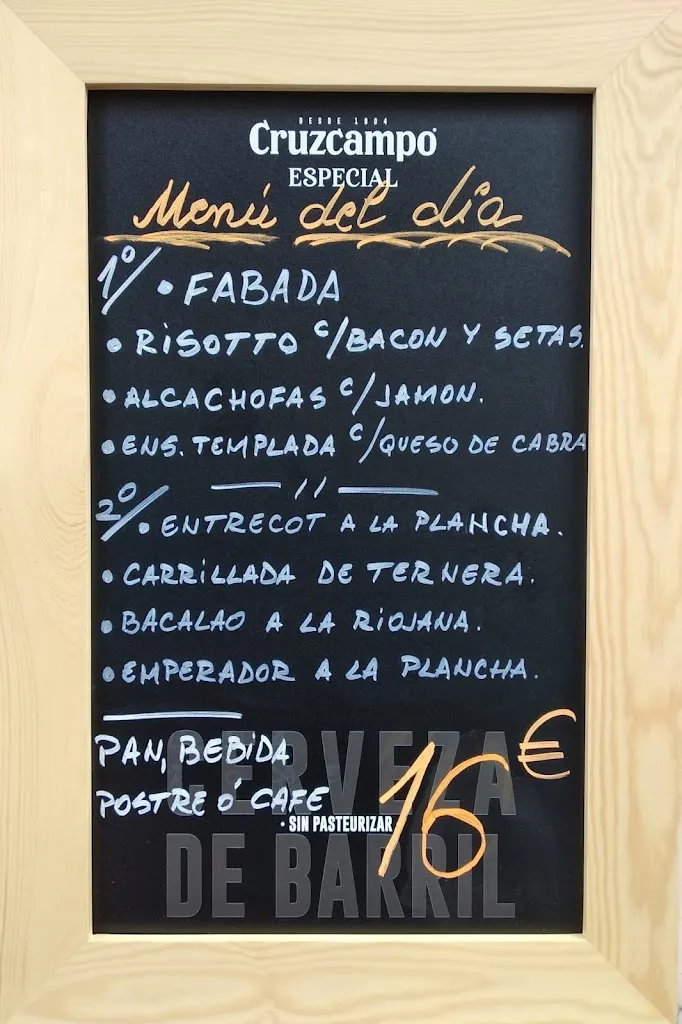 DESDE 1904
Cruzcampo
ESPECIAL
Menú del día
1º/ • FABADA
• RISOTTO c/BACON Y SETAS.
• ALCACHOFAS c/JAMON.
• ENS. TEMPLADA c/QUESO DE CABRA
— // —
2º/ • ENTRECOT A LA PLANCHA.
• CARRILLADA DE TERNERA.
• BACALAO A LA RIOJANA.
• EMPERADOR A LA PLANCHA.
PAN, BEBIDA
POSTRE Ó CAFE
16 €
CERVEZA
• SIN PASTEURIZAR
DE BARRIL